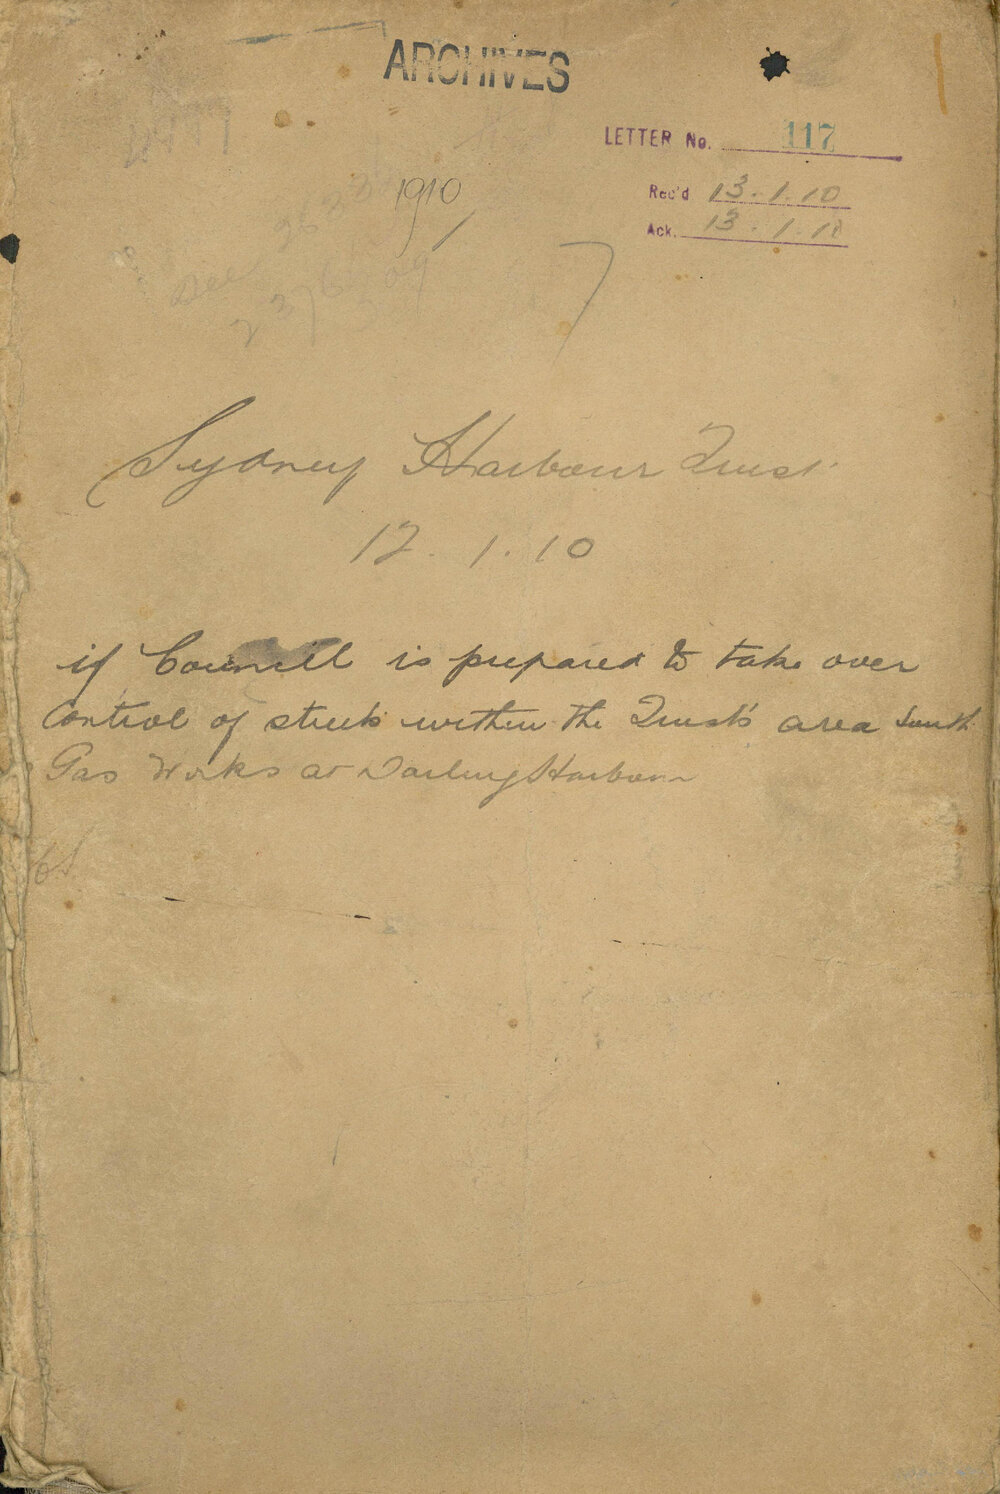 ARCHIVES
LETTER No. 117
1910
Rec'd 13.1.10
Ack. 13.1.10
See
Sydney Harbour Trust
12.1.10
if Council is prepared to take over
control of streets within the Trust's area South
Gas Works at Darling Harbour